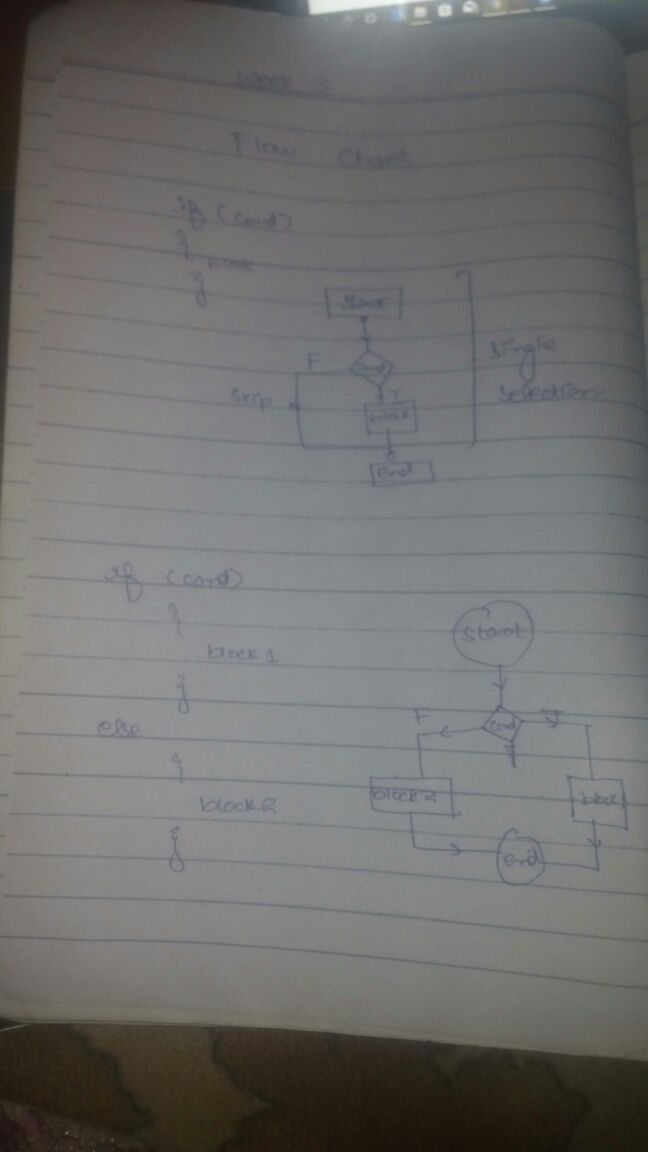 Week 5
Flow Chart
if (cond)
{
block
}
Start
F
cond
T
Skip
block
end
Single
Selection
if (cond)
{
block 1
}
else
{
block 2
}
Start
F
cond
T
block 2
block 1
end